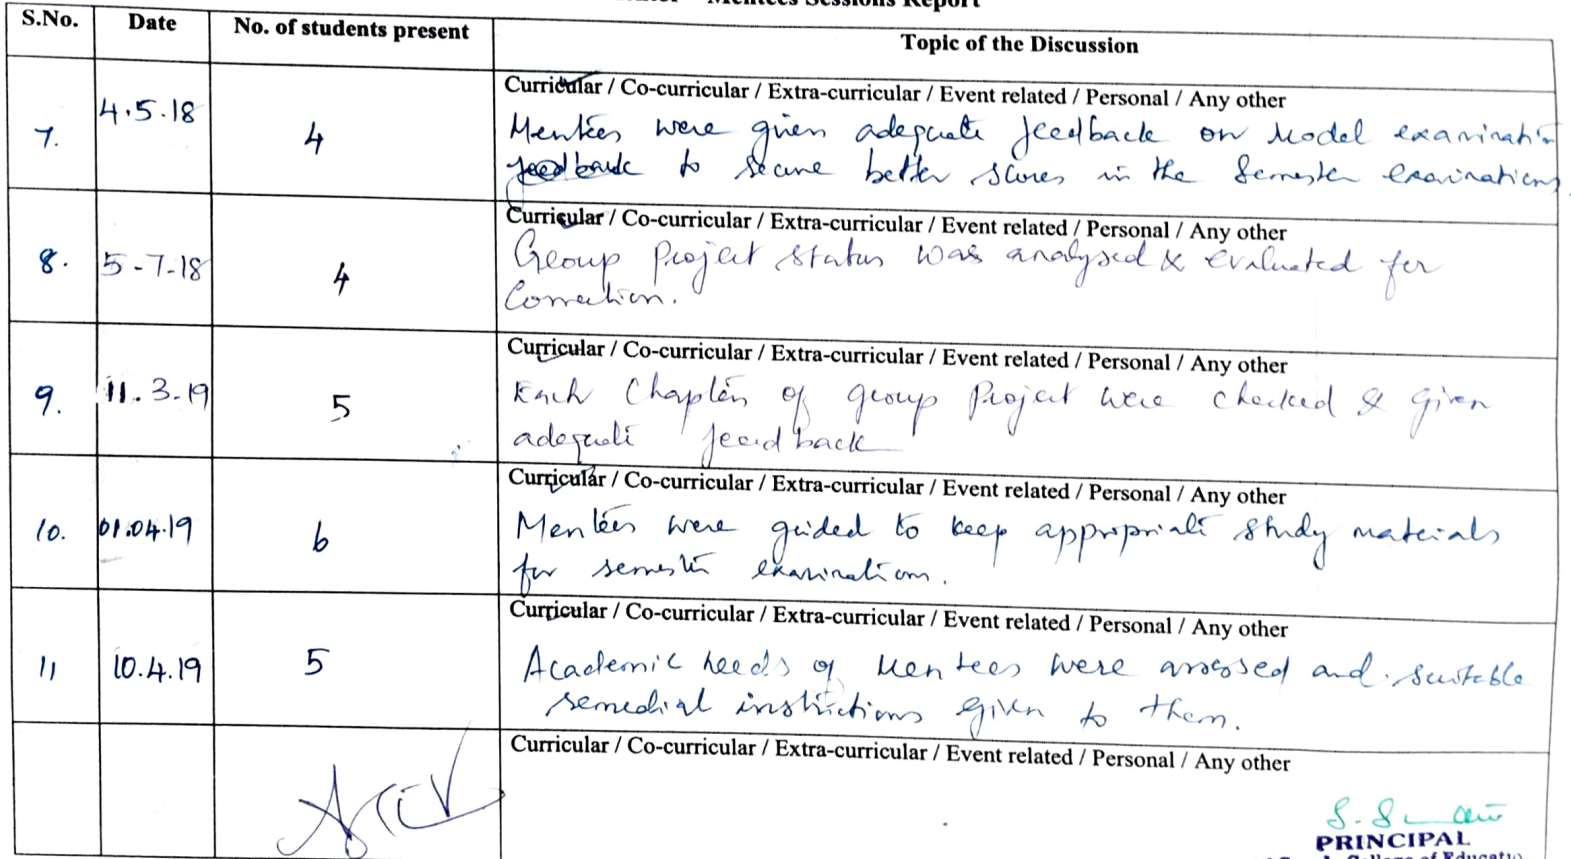 Mentees Sessions Report
S.No. Date No. of students present Topic of the Discussion
Curricular / Co-curricular / Extra-curricular / Event related / Personal / Any other
7. 4.5.18 4 Mentees were given adequate feedback on Model examination
to secure better scores in the Semester examinations.
Curricular / Co-curricular / Extra-curricular / Event related / Personal / Any other
8. 5-7-18 4 Group Project status was analysed & evaluated for
Correction.
Curricular / Co-curricular / Extra-curricular / Event related / Personal / Any other
9. 11.3.19 5 Each Chapter of group Project were checked & given
adequate feedback
Curricular / Co-curricular / Extra-curricular / Event related / Personal / Any other
10. 01.04.19 6 Mentees were guided to keep appropriate study materials
for semester examinations.
Curricular / Co-curricular / Extra-curricular / Event related / Personal / Any other
11 10.4.19 5 Academic needs of Mentees were assessed and suitable
remedial instructions given to them.
Curricular / Co-curricular / Extra-curricular / Event related / Personal / Any other
PRINCIPAL
College of Educatio